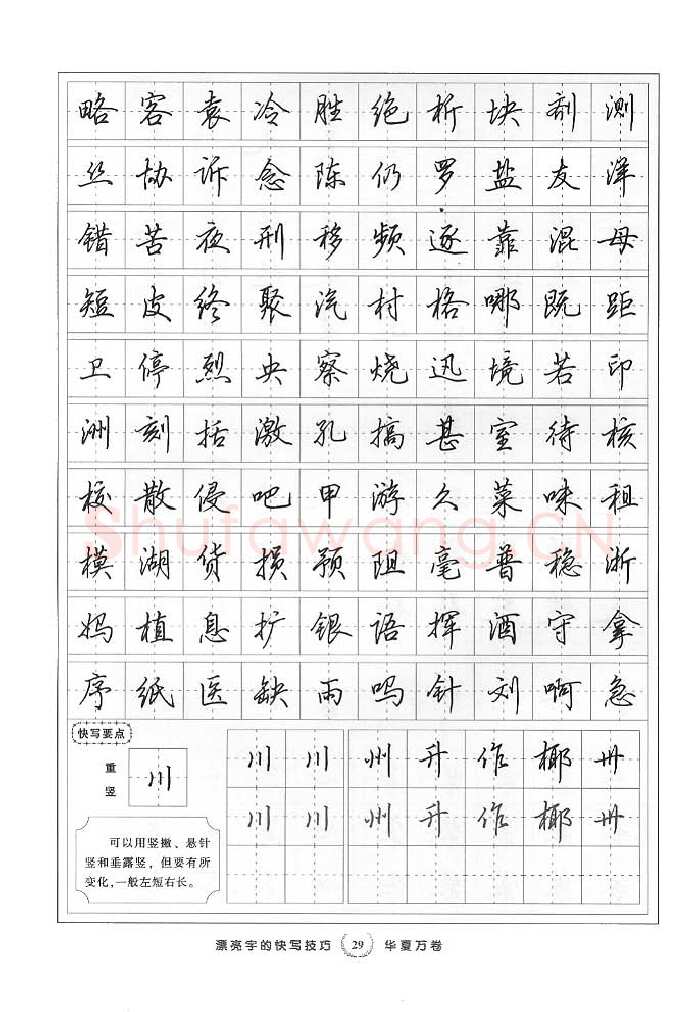 略客袁冷胜绝析块剂测
丝协诉念陈仍罗盐友洋
错苦夜刑移频逐靠混母
短皮终聚汽村格哪既距
卫停烈央察烧迅境若印
洲刻括激孔搞甚室待核
校散侵吧甲游久菜味租
模湖货损预阻毫普稳浙
妈植息扩银语挥酒守拿
序纸医缺雨吗针刘啊急
shufawang.CN
快写要点
重竖
川
可以用竖撇、悬针
竖和垂露竖,但要有所
变化,一般左短右长。
川川州升作椰卅
川川州升作椰卅
漂亮字的快写技巧 29 华夏万卷